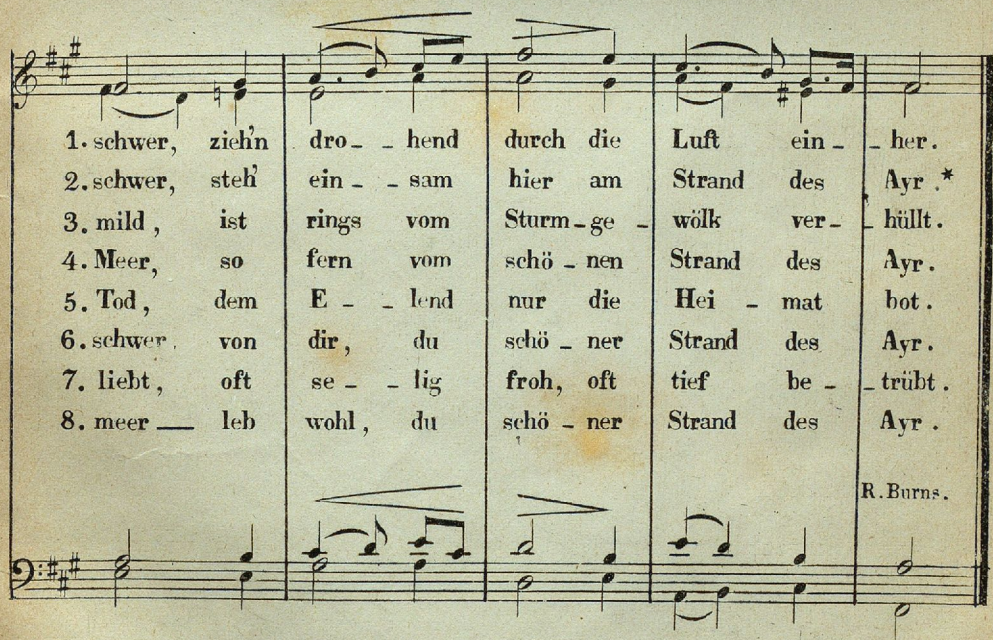 1. schwer, zieh'n dro - - hend durch die Luft ein - - her.
2. schwer, steh' ein - - sam hier am Strand des Ayr.*
3. mild, ist rings vom Sturm - ge - wölk ver - - hüllt.
4. Meer, so fern vom schö - nen Strand des Ayr.
5. Tod, dem E - - lend nur die Hei - mat bot.
6. schwer, von dir, du schö - ner Strand des Ayr.
7. liebt, oft se - - lig froh, oft tief be - - trübt.
8. meer — leb wohl, du schö - ner Strand des Ayr.
R. Burns.